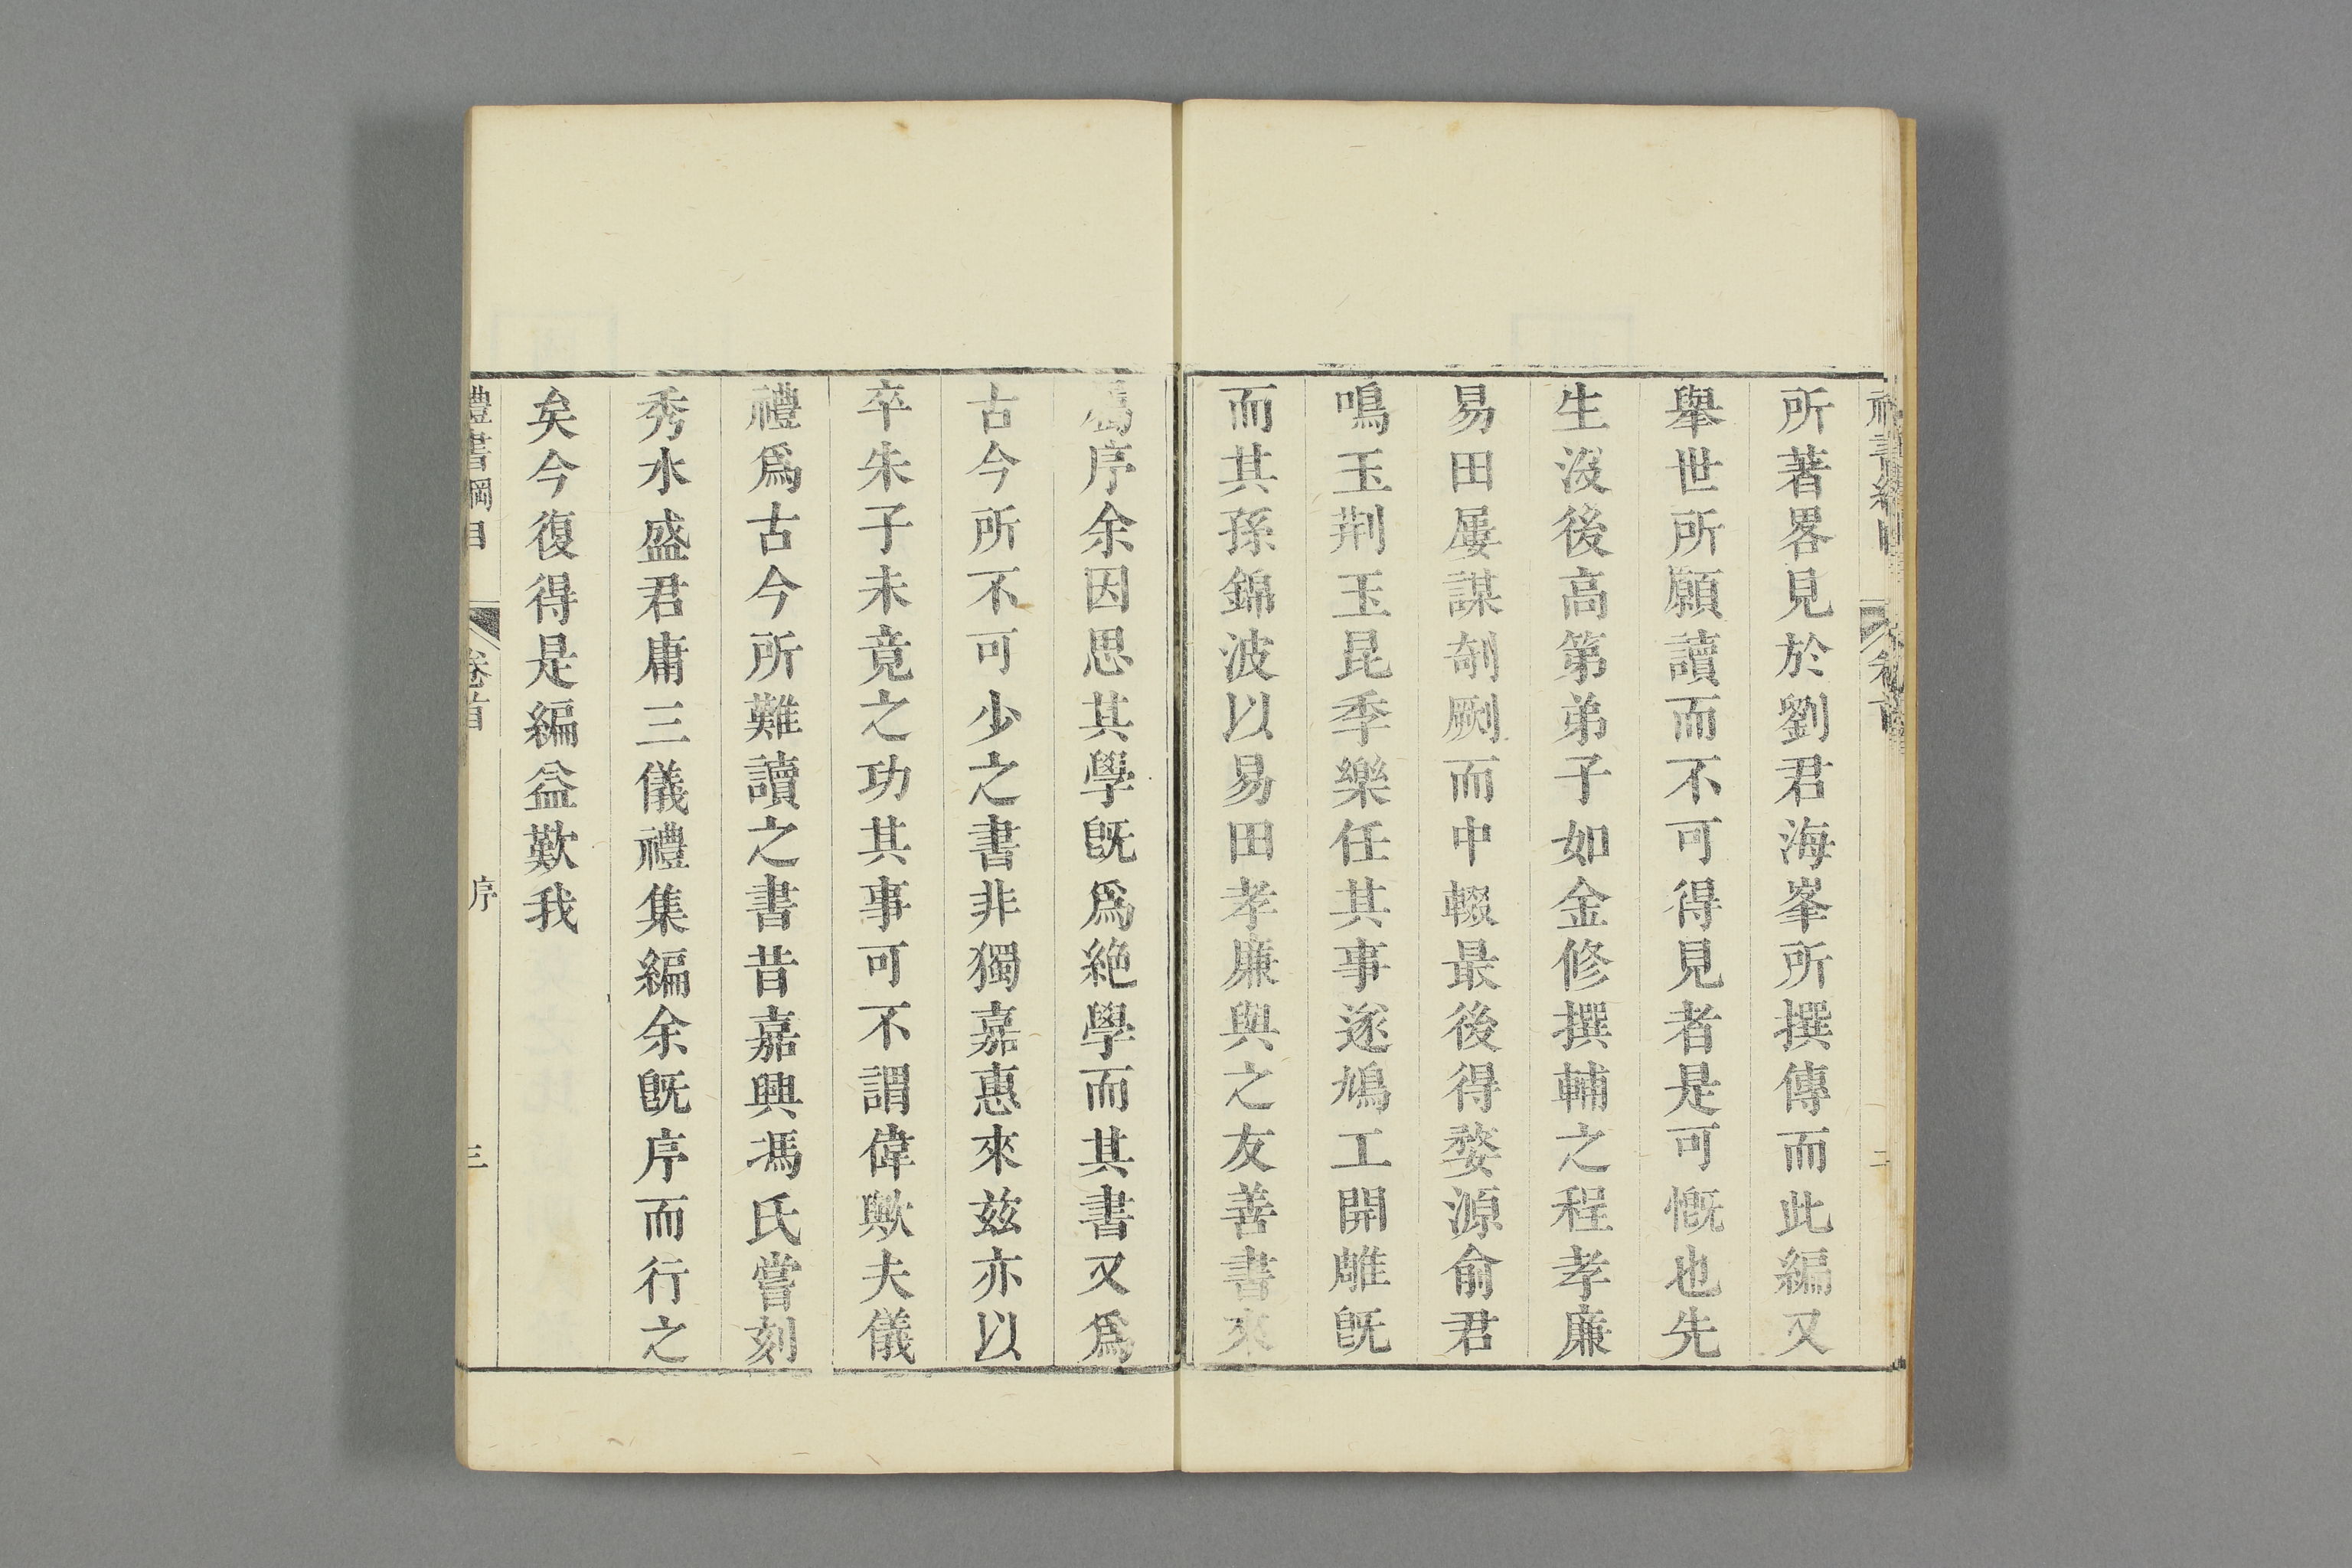 所著畧見於劉君海峯所撰傳而此編又
舉世所願讀而不可得見者是可慨也先
生沒後高第弟子如金修撰輔之程孝廉
易田屢謀剞劂而中輟最後得婺源俞君
鳴玉荆玉昆季樂任其事遂鳩工開雕旣
而其孫錦波以易田孝廉與之友善書來
屬序余因思其學旣爲絶學而其書又爲
古今所不可少之書非獨嘉惠來兹亦以
卒朱子未竟之功其事可不謂偉歟夫儀
禮爲古今所難讀之書昔嘉興馮氏嘗刻
秀水盛君庸三儀禮集編余旣序而行之
矣今復得是編益歎我
禮書綱目 卷首 序 三